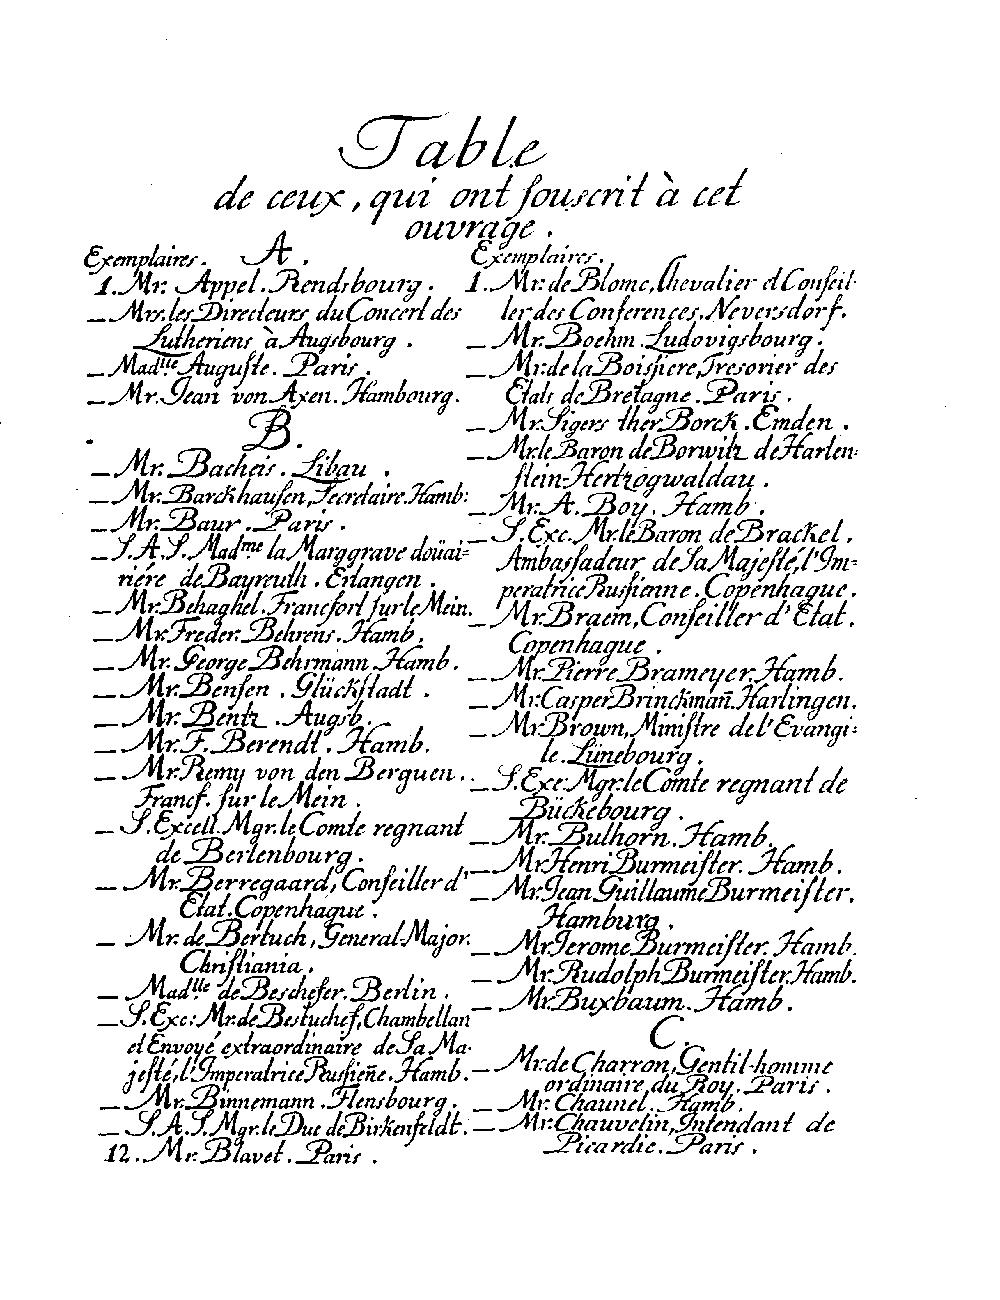 Table
de ceux, qui ont souscrit à cet
ouvrage.
Exemplaires. A.
1. Mr. Appel. Rendsbourg.
_ Mrs. les Directeurs du Concert des
Lutheriens à Augsbourg.
_ Madlle Auguste. Paris.
_ Mr. Jean von Axen. Hambourg.
B.
_ Mr. Bacheis. Libau.
_ Mr. Barckhausen, Secretaire. Hamb:
_ Mr. Baur. Paris.
_ S. A. S. Madme la Marggrave doüai=
riére de Bayreuth. Erlangen.
_ Mr. Behaghel. Francfort sur le Mein.
_ Mr. Freder. Behrens. Hamb.
_ Mr. George Behrmann. Hamb.
_ Mr. Bensen. Glückstadt.
_ Mr. Bentz. Augsb.
_ Mr. F. Berendt. Hamb.
_ Mr. Remy von den Berguen.
Francf. sur le Mein.
_ S. Excell. Mgr. le Comte regnant
de Berlenbourg.
_ Mr. Berregaard, Conseiller d'
Etat. Copenhague.
_ Mr. de Bertuch, General-Major.
Christiania.
_ Madlle de Beschefer. Berlin.
_ S. Exc: Mr. de Bestuchef, Chambellan
et Envoyé extraordinaire de Sa Ma-
jesté, l'Imperatrice Russien̄e. Hamb.
_ Mr. Binnemann. Flensbourg.
_ S. A. S. Mgr. le Duc de Birkenfeldt.
12. Mr. Blavet. Paris.
Exemplaires.
1. Mr. de Blome, Chevalier et Conseil-
ler des Conferences. Neversdorf.
_ Mr. Boehm. Ludovigsbourg.
_ Mr. de la Boissiere, Tresorier des
Etats de Bretagne. Paris.
_ Mr. Sigers ther Borck. Emden.
_ Mr. le Baron de Borwitz de Harten=
stein-Hertzogwaldau.
_ Mr. A. Boy. Hamb.
_ S. Exc. Mr. le Baron de Brackel.
Ambassadeur de Sa Majesté, l'Im=
peratrice Russienne. Copenhague.
_ Mr. Braem, Conseiller d'Etat.
Copenhague.
_ Mr. Pierre Brameyer. Hamb.
_ Mr. Casper Brinckman̄. Harlingen.
_ Mr. Brown, Ministre de l'Evangi=
le. Lünebourg.
_ S. Exc. Mgr. le Comte regnant de
Bückebourg.
_ Mr. Bulhorn. Hamb.
_ Mr. Henri Burmeister. Hamb.
_ Mr. Jean Guillaume Burmeister.
Hamburg.
_ Mr. Jerome Burmeister. Hamb.
_ Mr. Rudolph Burmeister. Hamb.
_ Mr. Buxbaum. Hamb.
C.
_ Mr. de Charron, Gentil-homme
ordinaire du Roy. Paris.
_ Mr. Chaunel. Hamb.
_ Mr. Chauvelin, Intendant de
Picardie. Paris.